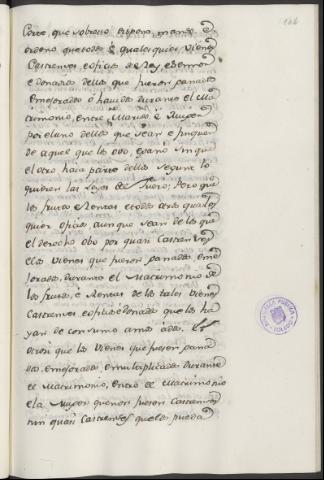 166
Corte que sobre ello dispone, mando é
ordeno que todos é qualesquier Vienes
Castrenses, é oficios de Rey, é Donos
é donadios dellos que fueron ganados
é mejorados ó havidos durante el Ma
trimonio, entre Marido é Muger
por el uno dellos que sean é finquen
de aquel que los ovo, é ganó, sin que
el otro haia parte dellos segun lo
quieren las Leyes del Fuero; Pero que
los frutos é Rentas é todos otros quales
quier oficios aunque sean de los que
el derecho obo por quasi Castrenses é
é los Vienes que fueron ganados é me
jorados durante el Matrimonio de
los frutos, é Rentas de los tales Vienes
Castrenses é oficios é donadios que los ha
yan de consumo ambos á dos.
que los Vienes que fuesen gana
dos é mejorados é multiplicados durante
el Matrimonio, entre el
é la Muger que non fuesen Castrenses
nin quasi Castrenses que los pueda
BIBLIOTECA PUBLICA
TOLEDO